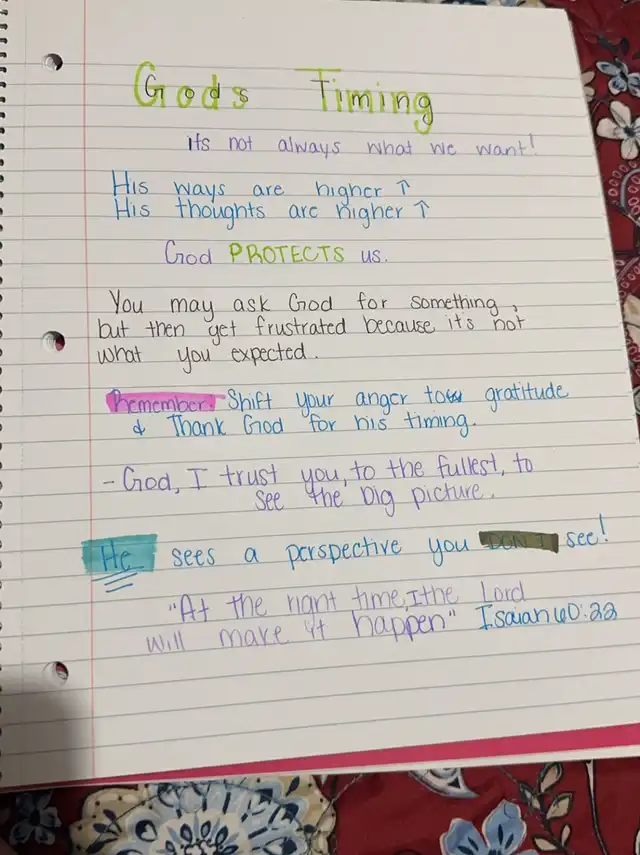 Gods Timing
its not always what we want!
His ways are higher ↑
His thoughts are higher ↑
God PROTECTS us.
You may ask God for something,
but then get frustrated because it's not
what you expected.
Remember: Shift your anger to gratitude
& Thank God for his timing.
- God, I trust you, to the fullest, to
see the big picture.
He sees a perspective you DON'T see!
"At the right time, I the Lord
will make it happen" Isaiah 60:22